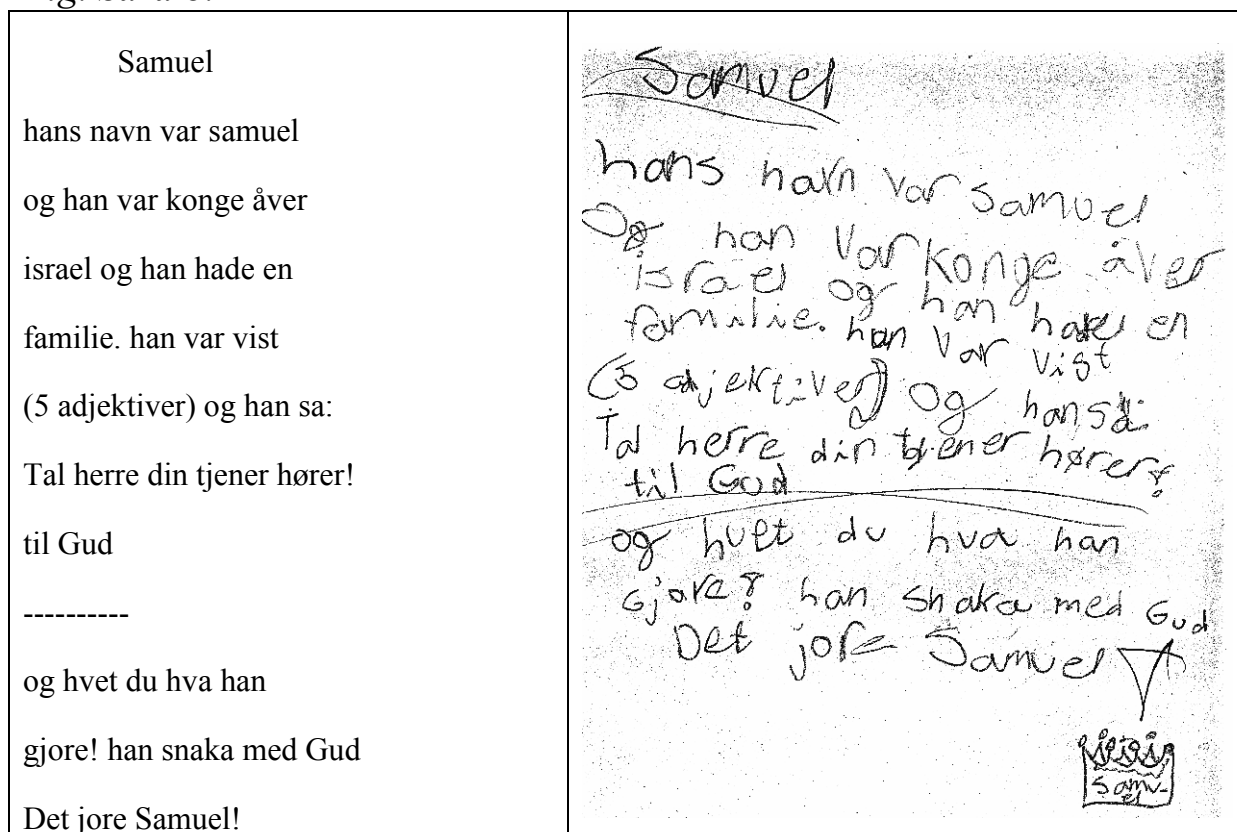 Samuel
hans navn var samuel
og han var konge åver
israel og han hade en
familie. han var vist
(5 adjektiver) og han sa:
Tal herre din tjener hører!
til Gud
----------
og hvet du hva han
gjore! han snaka med Gud
Det jore Samuel!
Samuel
hans navn var samuel
Og han var konge åver
israel og han hade en
familie. han var vist
(5 adjektiver) Og han sa:
Tal herre din tjener hører!
til Gud
og hvet du hva han
gjore! han snaka med Gud
Det jore Samuel
Samu-
el